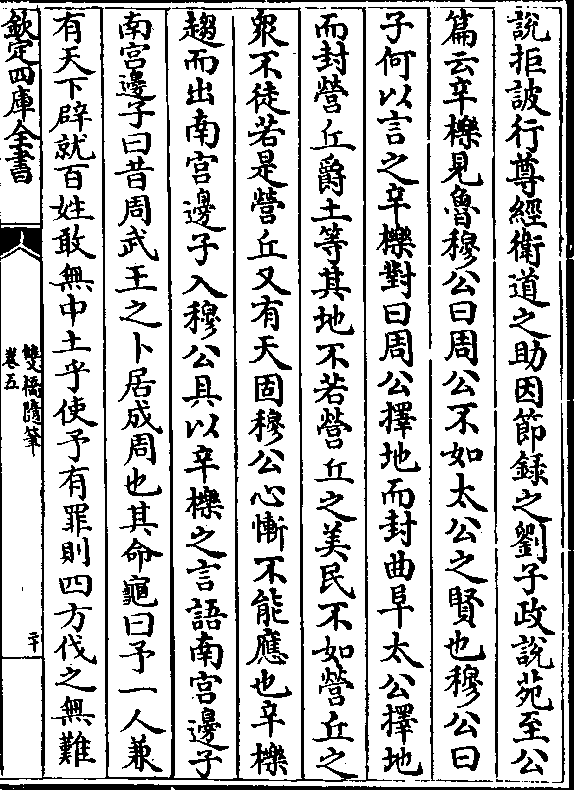 說拒詖行尊經衛道之助因節録之劉子政說苑至公
篇云辛櫟見魯穆公曰周公不如太公之賢也穆公曰
子何以言之辛櫟對曰周公擇地而封曲阜太公擇地
而封營丘爵土等其地不若營丘之美民不如營丘之
衆不徒若是營丘又有天固穆公心慚不能應也辛櫟
趨而出南宫邊子入穆公具以辛櫟之言語南宫邊子
南宫邊子曰昔周武王之卜居成周也其命龜曰予一人兼
有天下辟就百姓敢無中土乎使予有罪則四方伐之無難
欽定四庫全書
雙橋隨筆
卷五
二十